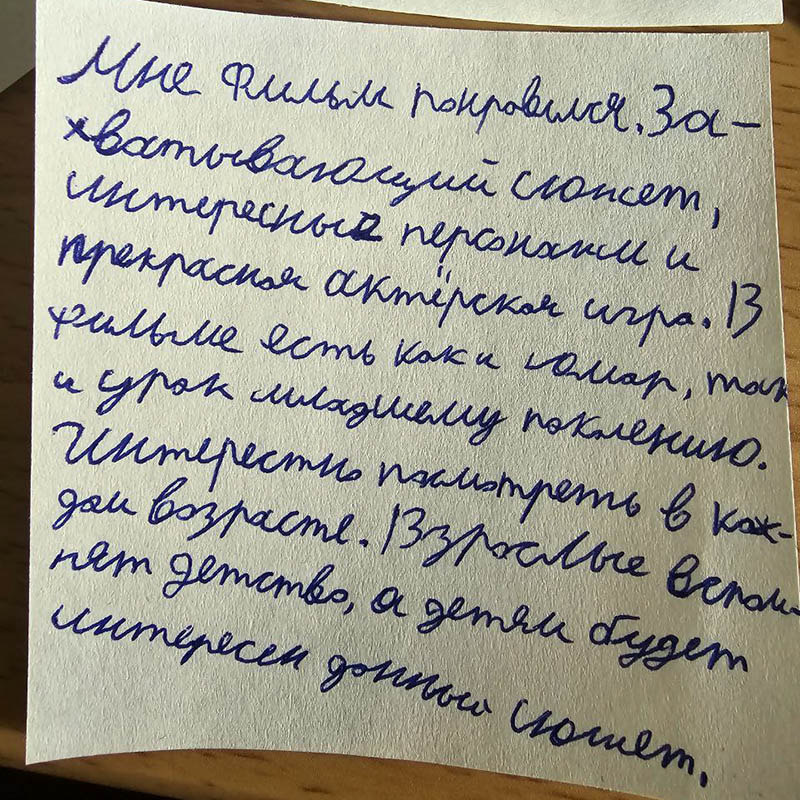 Мне фильм понравился. За-
хватывающий сюжет,
интересные персонажи и
прекрасная актёрская игра. В
фильме есть как и юмор, так
и урок младшему поколению.
Интерестно посмотреть в каж-
дом возрасте. Взрослые вспом-
нят детство, а детям будет
интересен данный сюжет.